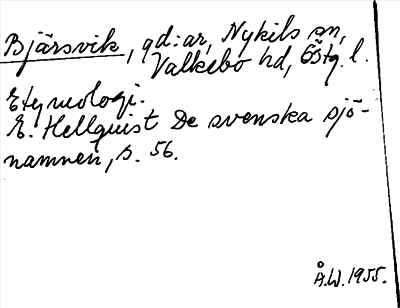 Bjärsvik, gd:ar, Nykils sn,
Valkebo hd, Östg. l.
Etymologi.
E. Hellquist De svenska sjö-
namnen, s. 56.
Å.W. 1955.